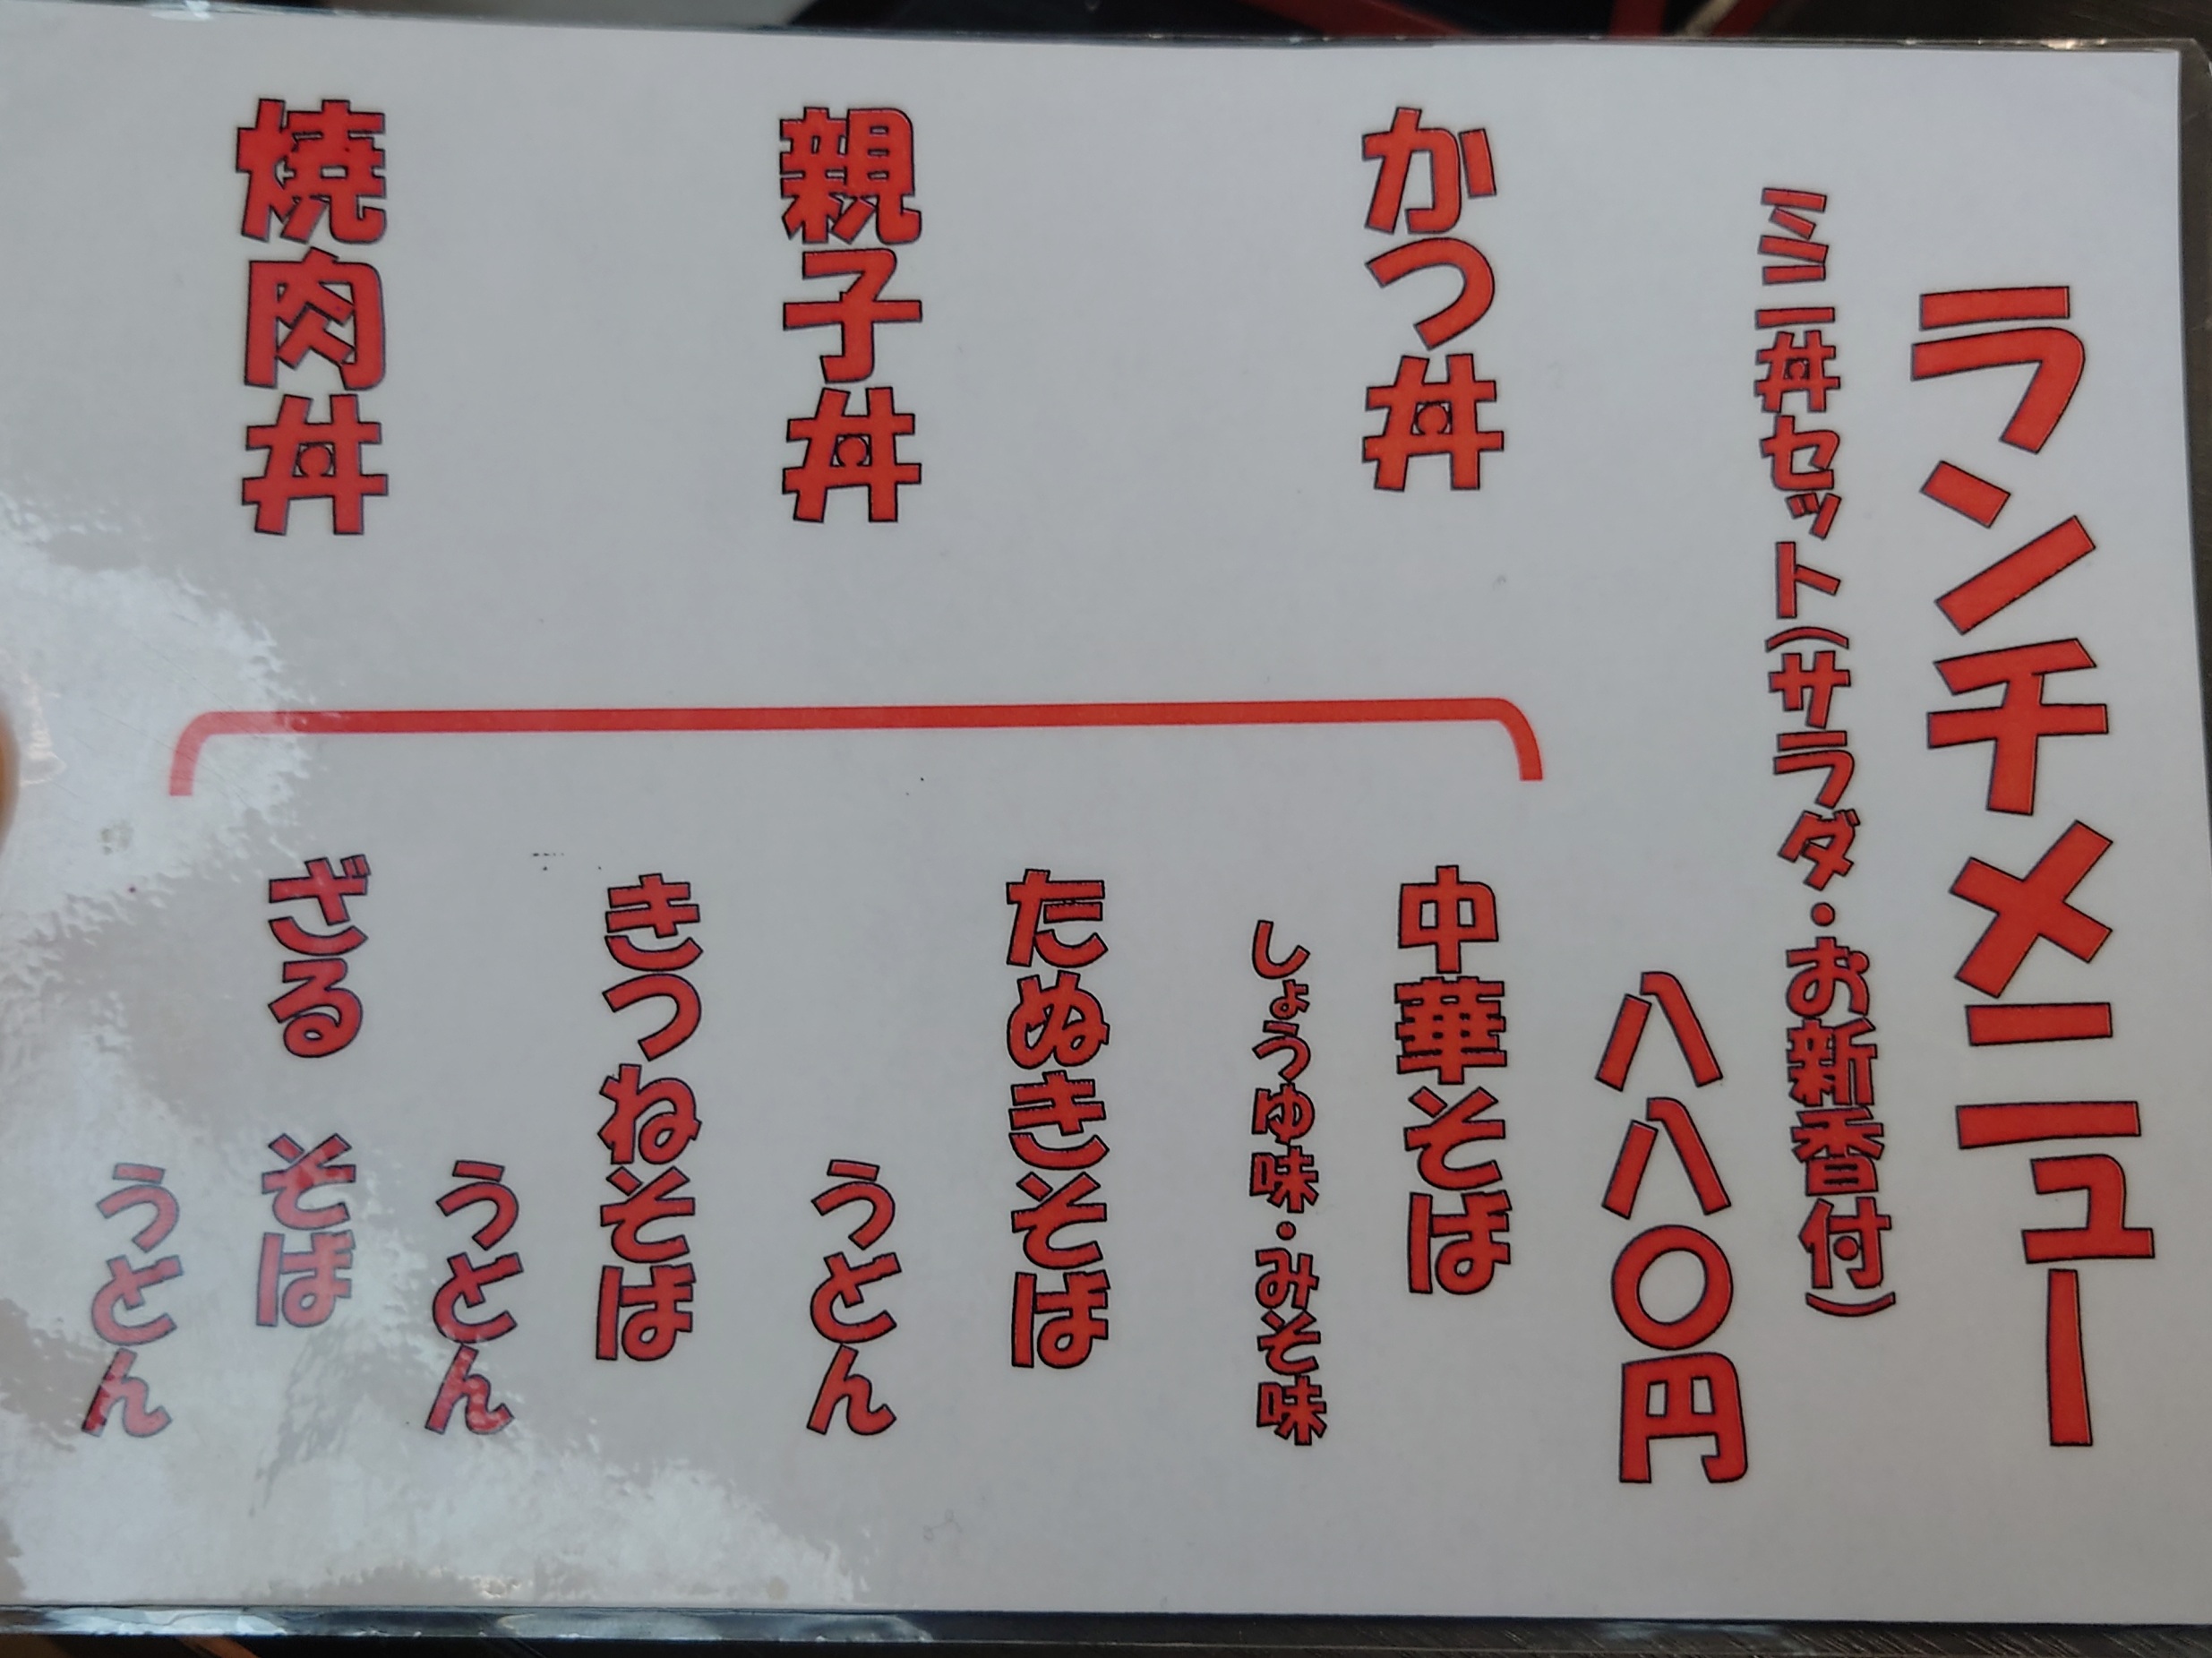 ランチメニュー
ミニ丼セット(サラダ・お新香付)
八八〇円
かつ丼
親子丼
焼肉丼
中華そば
しょうゆ味・みそ味
たぬきそば
うどん
きつねそば
うどん
ざる そば
うどん